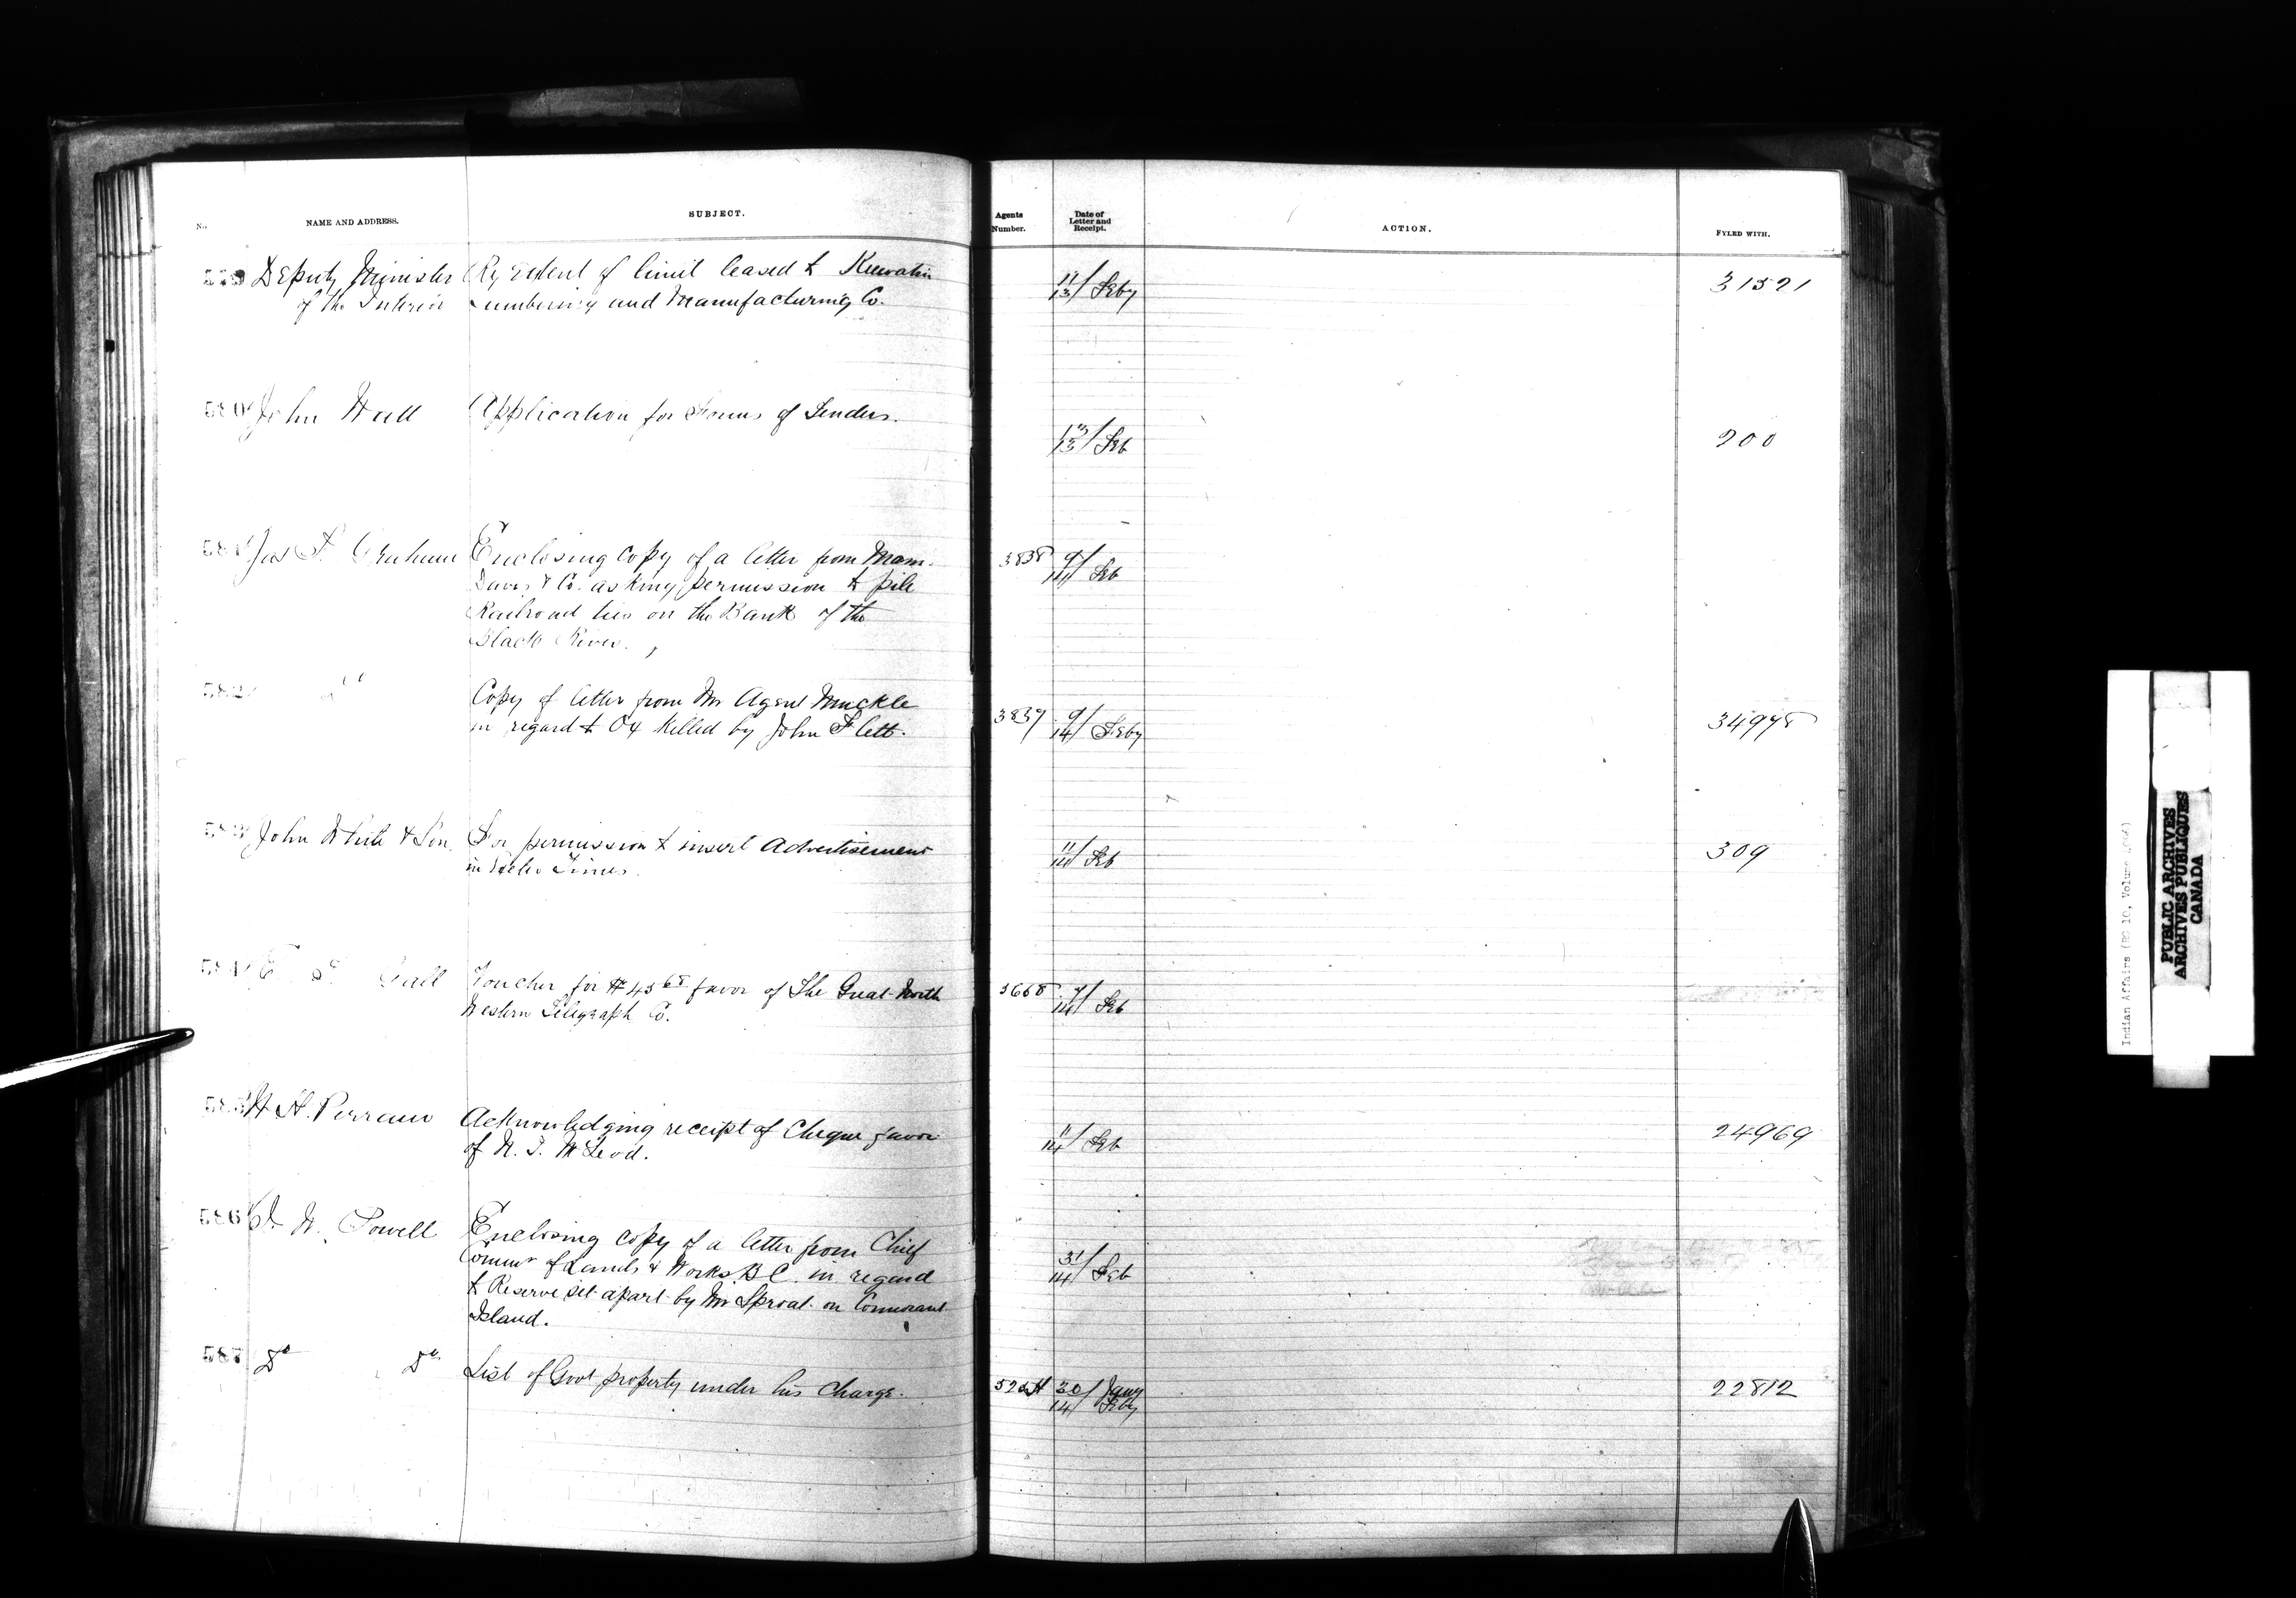 No.
NAME AND ADDRESS.
SUBJECT.
Agents
Number.
Date of
Letter and
Receipt.
ACTION.
FYLED WITH.
579 Deputy Minister Re extent of limit leased to Keewatin
of the Interior Lumbering and Manufacturing Co.
11/13 Feby
31521
580 John Wall Application for Forms of Tenders.
13 Feb
200
581 Jas F. Graham Enclosing copy of a letter from
Co. asking permission to pile
Railroad ties on the Bank of the
Black River.
3838 9/14 Feb
582 Copy of letter from Mr Agent Muckle
in regard to Ox killed by John Flett.
3839 9/14 Feby
34978
583 John White & Son For permission to insert Advertisement
in Times.
11/14 Feb
309
584 Voucher for $45 68 favor of The Great North
Western Telegraph Co.
3668 7/14 Feb
585 Acknowledging receipt of Cheque favor
of McLeod.
11/14 Feb
24969
586 W. Powell Enclosing copy of a letter from Chief
Commr of Lands & Works B C. in regard
to Reserve set apart by Mr Sproat on Cormorant
Island.
31/14 Feb
587 Do Do List of Govt property under his charge.
30/14 Jany
Feby
22812
Indian Affairs (RG 10, Volume
PUBLIC ARCHIVES
ARCHIVES PUBLIQUES
CANADA